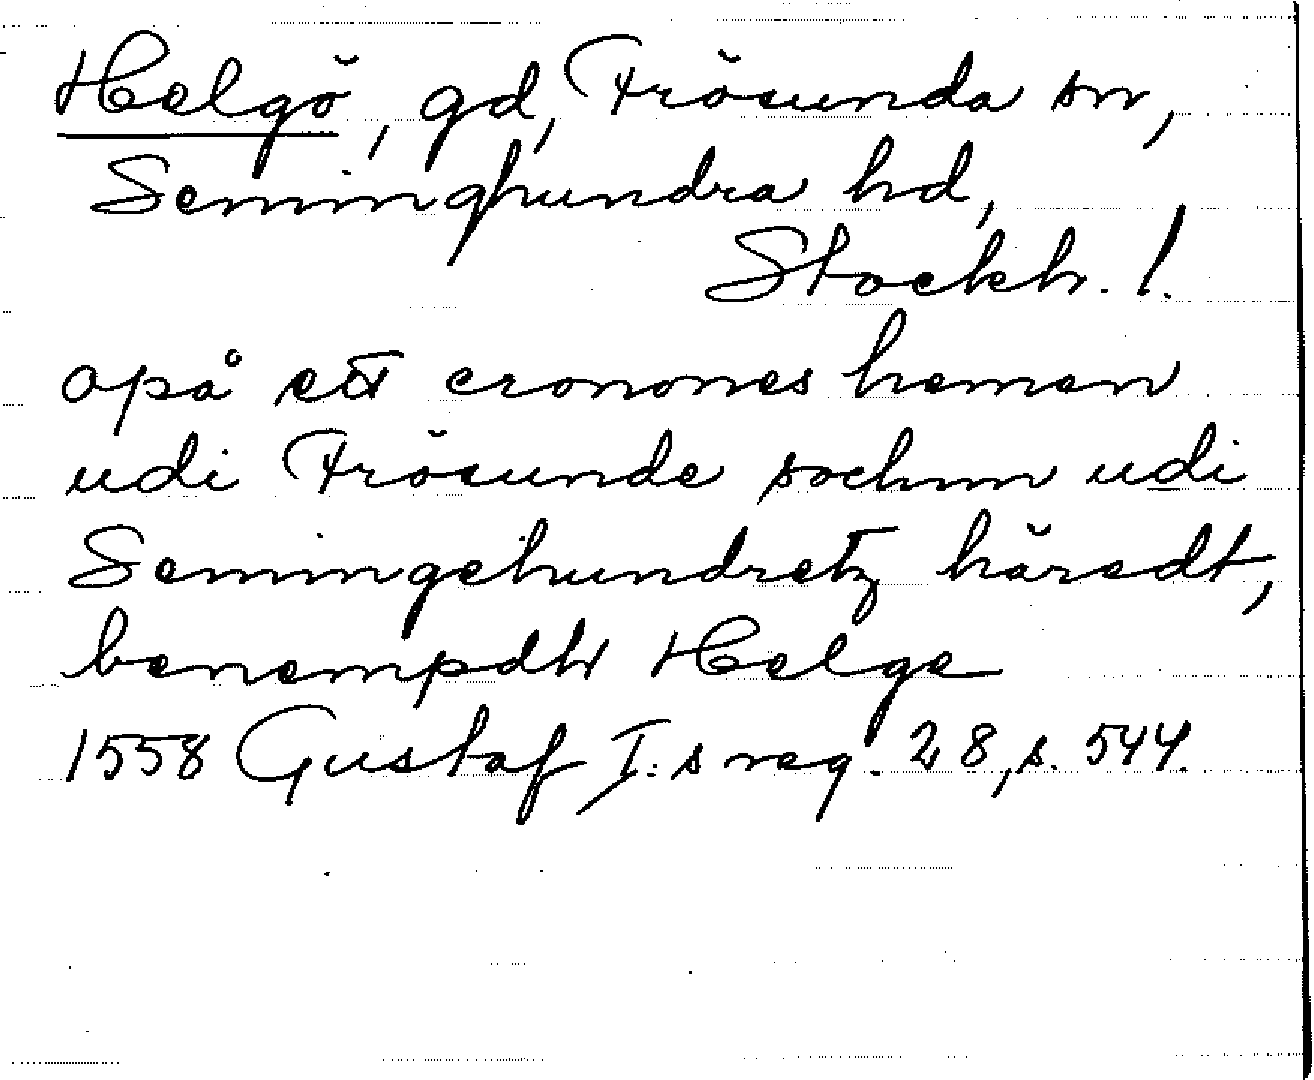 Helgö, gd, Frösunda sn,
Seminghundra hd,
Stockh. l.
opå ett cronones heman
udi Frösunde sochnn udi
Semingehundretz häredt,
benempdtt Helge
1558 Gustaf I:s reg. 28, s. 544.